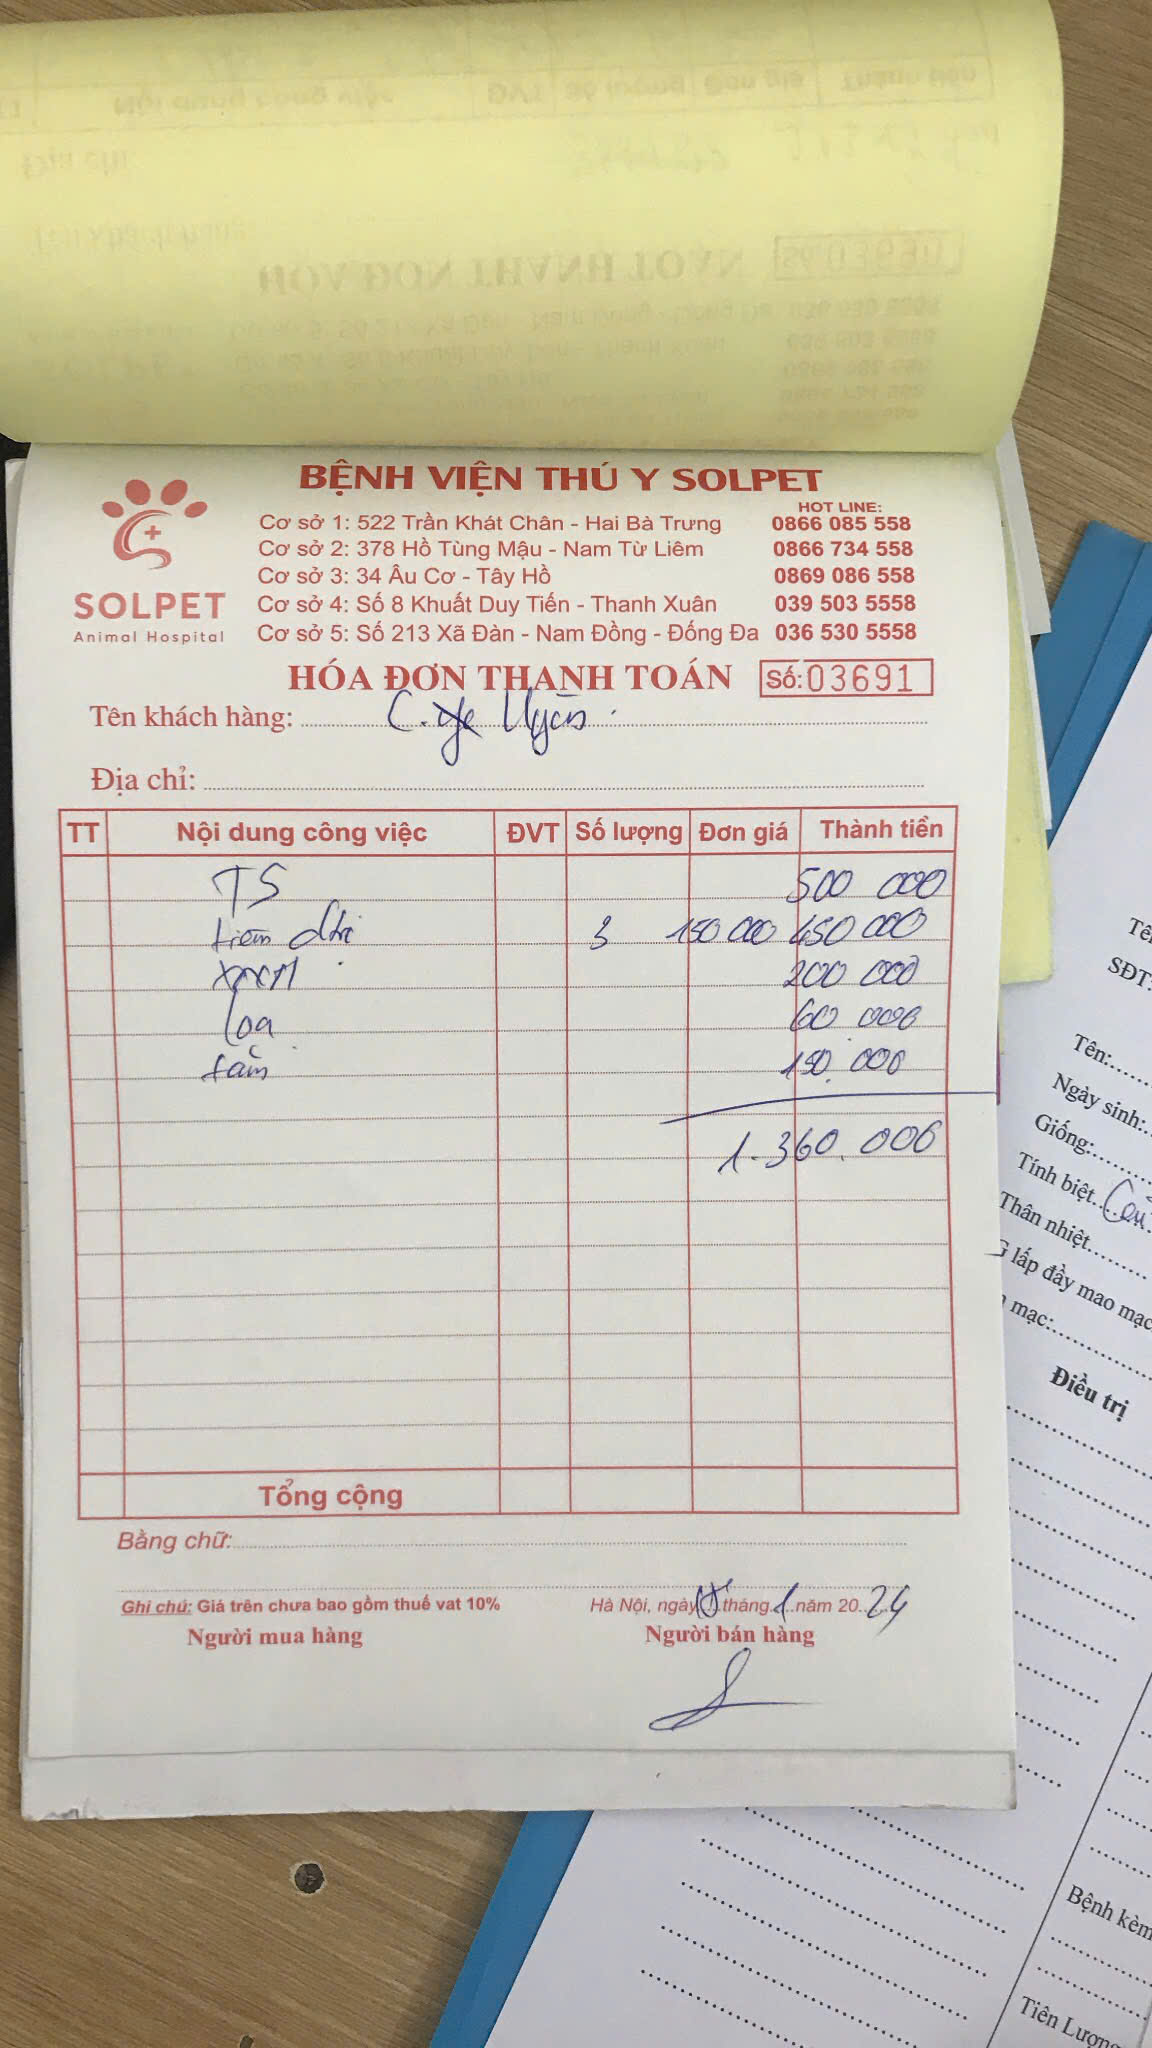 BỆNH VIỆN THÚ Y SOLPET
HOT LINE:
Cơ sở 1: 522 Trần Khát Chân - Hai Bà Trưng 0866 085 558
Cơ sở 2: 378 Hồ Tùng Mậu - Nam Từ Liêm 0866 734 558
Cơ sở 3: 34 Âu Cơ - Tây Hồ 0869 086 558
Cơ sở 4: Số 8 Khuất Duy Tiến - Thanh Xuân 039 503 5558
Cơ sở 5: Số 213 Xã Đàn - Nam Đồng - Đống Đa 036 530 5558
SOLPET
Animal Hospital
HÓA ĐƠN THANH TOÁN Số: 03691
Tên khách hàng: C.
Địa chỉ:
TT Nội dung công việc ĐVT Số lượng Đơn giá Thành tiền
TS 500 000
tiêm 3 150 000 450 000
200 000
Loa 60 000
tắm 150.000
1.360.000
Tổng cộng
Bằng chữ:
Ghi chú: Giá trên chưa bao gồm thuế vat 10%
Hà Nội, ngày tháng 1 năm 2024
Người mua hàng Người bán hàng
SĐT:
Tên:
Ngày sinh:
Giống:
Tính biệt
Thân nhiệt
lấp đầy mao mạc
mạc:
Điều trị
Bệnh kèm
Tiên Lượng